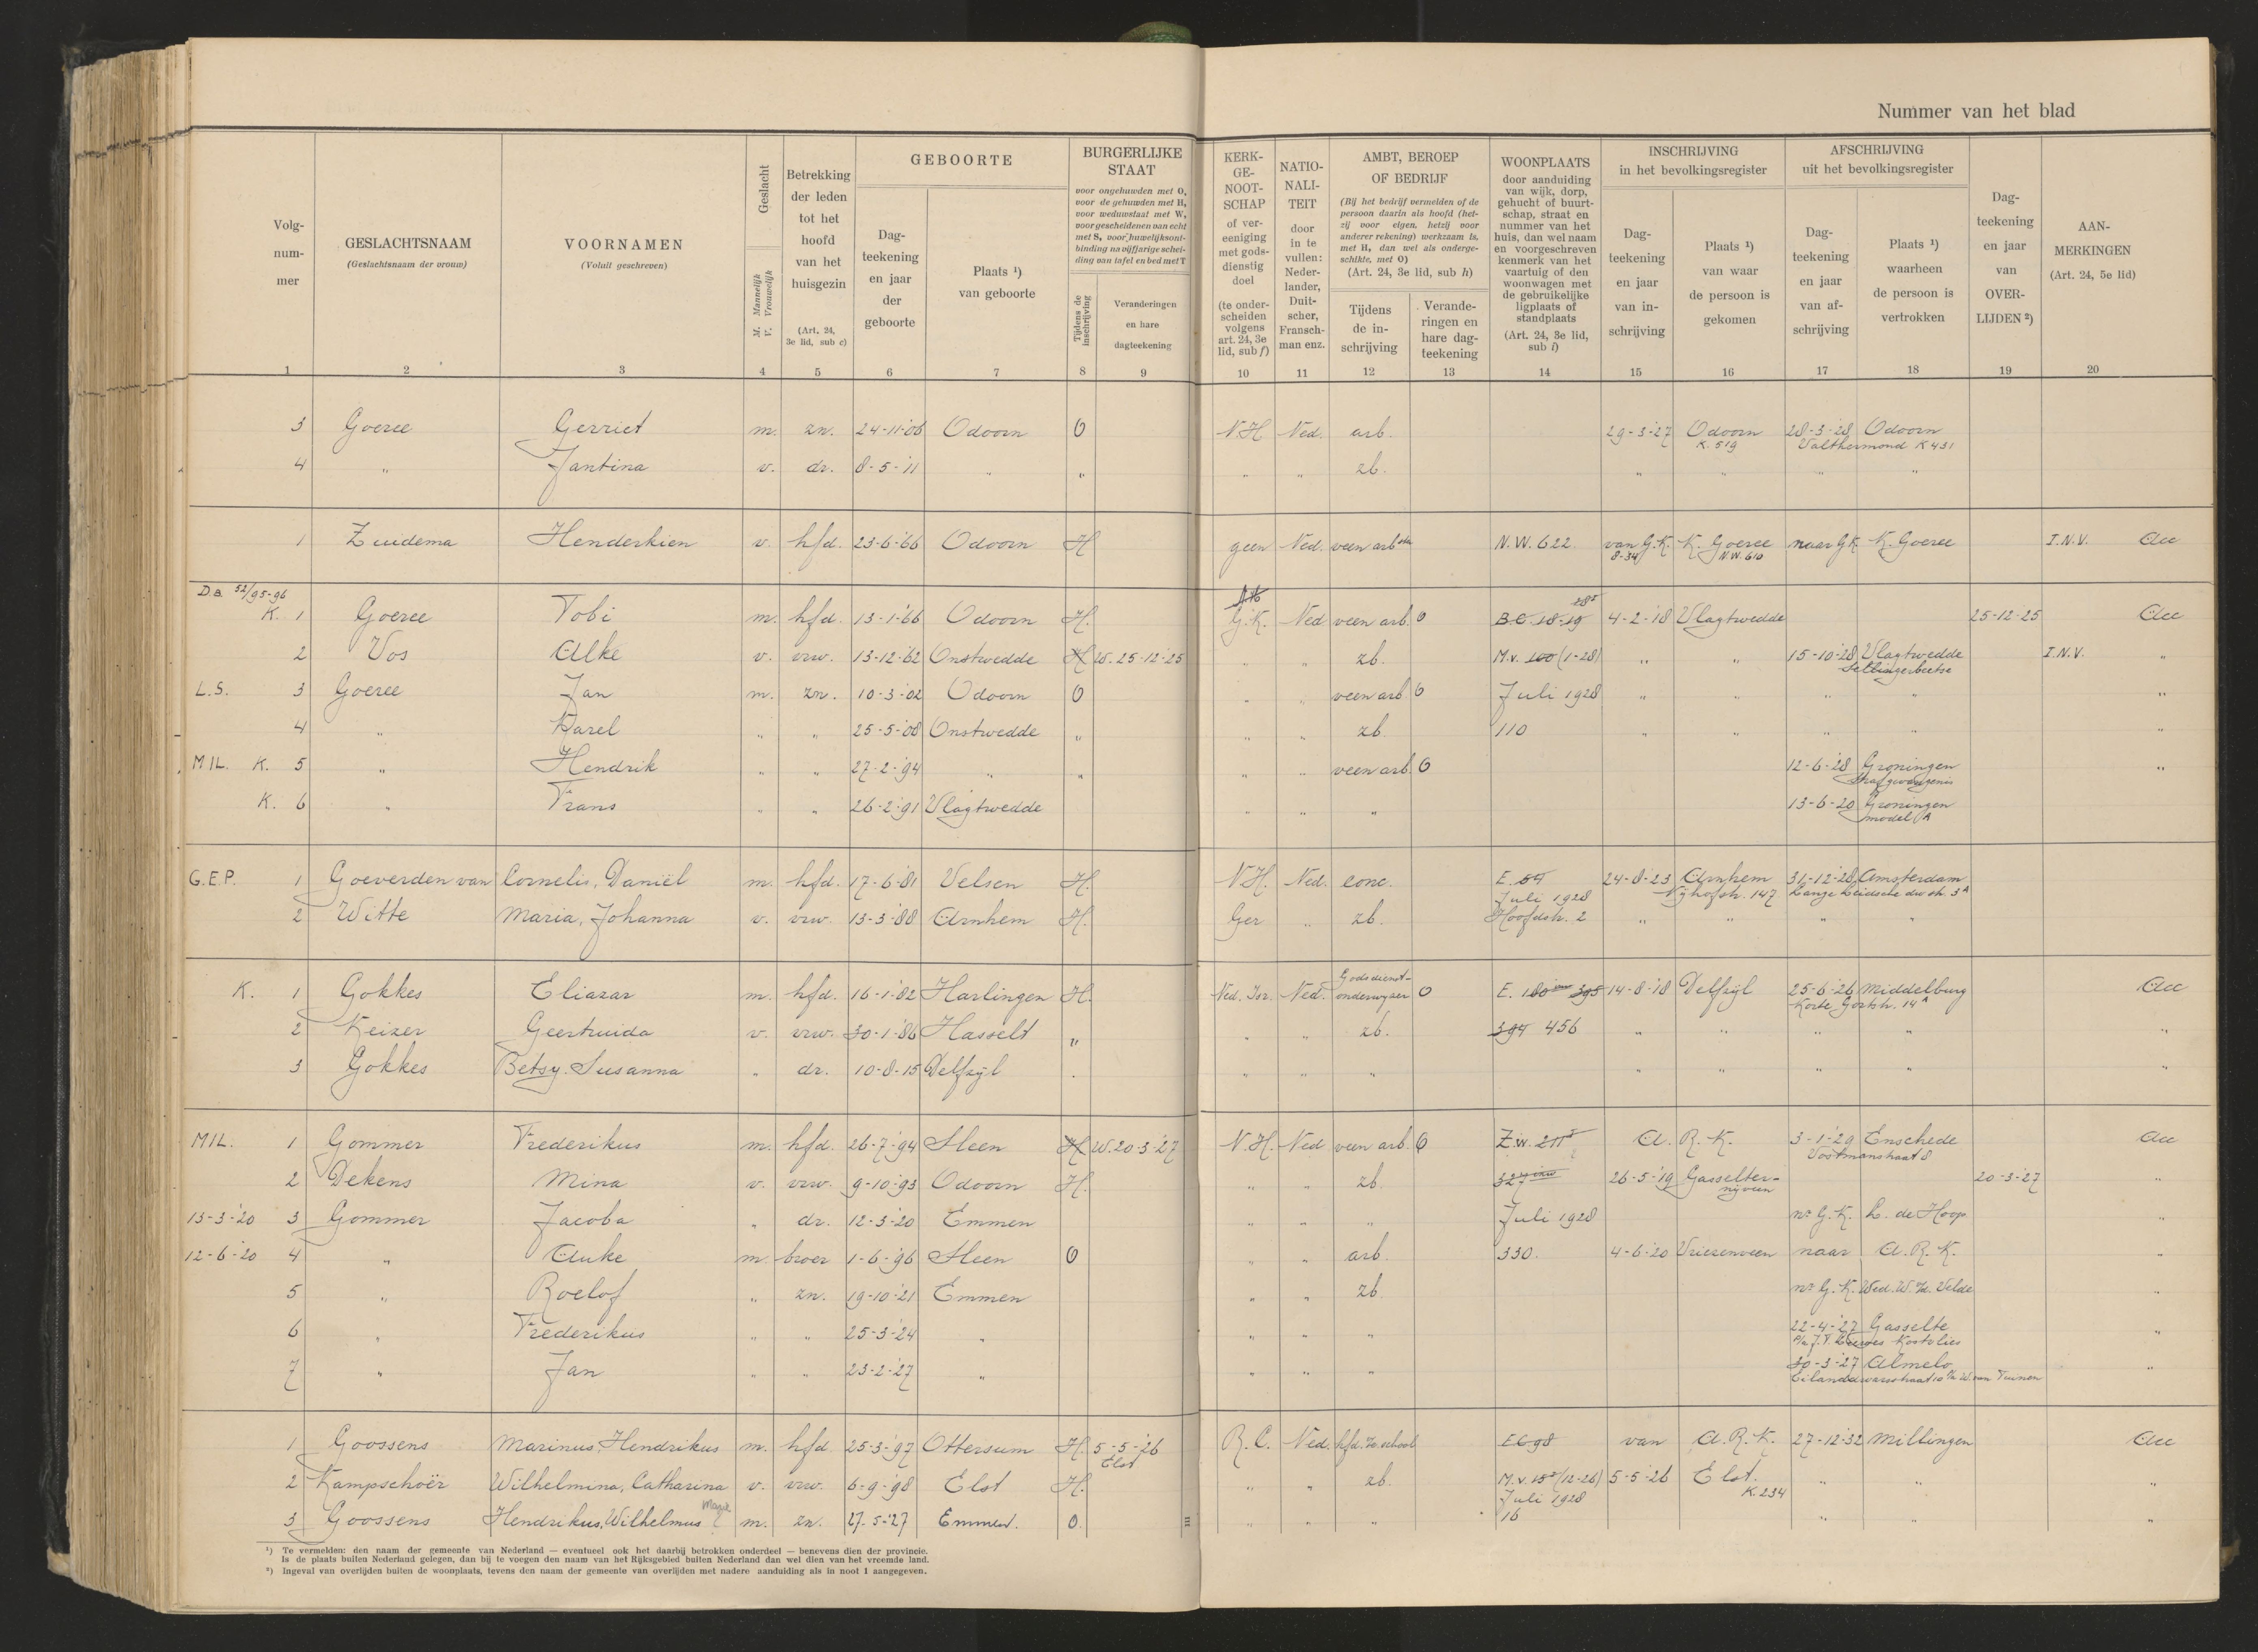 Nummer van het blad
Volg-
num-
mer
GESLACHTSNAAM
(Geslachtsnaam der vrouw)
VOORNAMEN
(Voluit geschreven)
Geslacht
M. Mannelijk
V. Vrouwelijk
Betrekking
der leden
tot het
hoofd
van het
huisgezin
(Art. 24,
3e lid, sub c)
GEBOORTE
Dag-
teekening
en jaar
der
geboorte
Plaats ¹)
van geboorte
BURGERLIJKE
STAAT
voor ongehuwden met O,
voor de gehuwden met H,
voor weduwstaat met W,
voor gescheidenen van echt
met S, voor huwelijksont-
binding na vijfjarige schei-
ding van tafel en bed met T
Tijdens de
inschrijving
Veranderingen
en hare
dagteekening
KERK-
GE-
NOOT-
SCHAP
of ver-
eeniging
met gods-
dienstig
doel
(te onder-
scheiden
volgens
art. 24, 3e
lid, sub f)
NATIO-
NALI-
TEIT
door
in te
vullen:
Neder-
lander,
Duit-
scher,
Fransch-
man enz.
AMBT, BEROEP
OF BEDRIJF
(Bij het bedrijf vermelden of de
persoon daarin als hoofd (het-
zij voor eigen, hetzij voor
anderer rekening) werkzaam is,
met H, dan wel als onderge-
schikte, met O)
(Art. 24, 3e lid, sub h)
Tijdens
de in-
schrijving
Verande-
ringen en
hare dag-
teekening
WOONPLAATS
door aanduiding
van wijk, dorp,
gehucht of buurt-
schap, straat en
nummer van het
huis, dan wel naam
en voorgeschreven
kenmerk van het
vaartuig of den
woonwagen met
de gebruikelijke
ligplaats of
standplaats
(Art. 24, 3e lid,
sub i)
INSCHRIJVING
in het bevolkingsregister
Dag-
teekening
en jaar
van in-
schrijving
Plaats ¹)
van waar
de persoon is
gekomen
AFSCHRIJVING
uit het bevolkingsregister
Dag-
teekening
en jaar
van af-
schrijving
Plaats ¹)
waarheen
de persoon is
vertrokken
Dag-
teekening
en jaar
van
OVER-
LIJDEN ²)
AAN-
MERKINGEN
(Art. 24, 5e lid)
1 2 3 4 5 6 7 8 9 10 11 12 13 14 15 16 17 18 19 20
3 Goeree Gerriet m. zn. 24-11-'06 Odoorn O N.H Ned. arb. 29-3-'27 Odoorn 28-3-'28 Odoorn
K. 519 Valthermond K 431
4 " Jantina v. dr. 8-5-'11 " " " " zb. " " " "
1 Zuidema Henderkien v. hfd. 23-6-'66 Odoorn H geen Ned. veen arb N.W. 622 van G.K. K. Goeree naar G.K K. Goeree I.N.V. Acc
8-34 N.W. 610
D.a. 52/95-96
K. 1 Goeree Tobi m. hfd. 13-1-'66 Odoorn H. G.K. Ned veen arb. O B.C. 18-19 4-2-'18 Vlagtwedde 25-12-25 Acc
2 Vos Alke v. vrw. 13-12-'62 Onstwedde H W. 25-12-25 " " zb. M.v. 100 (1-28) " " 15-10-'28 Vlagtwedde I.N.V. "
Sellingerbeetse
L.S. 3 Goeree Jan m. zn. 10-3-'02 Odoorn O " " veen arb. O Juli 1928 " " " " "
4 " Karel " " 25-5-'08 Onstwedde " " " zb. 110 " " " " "
MIL. K. 5 " Hendrik " " 27-2-'94 " " " " veen arb. O 12-6-'28 Groningen "
Strafgevangenis
K. 6 " Frans " " 26-2-'91 Vlagtwedde " " " 13-6-20 Groningen
model A
G.E.P. 1 Goeverden van Cornelis, Daniël m. hfd. 17-6-'81 Velsen H. N.H. Ned. conc. E. 54 24-8-23 Arnhem 31-12-28 Amsterdam
Juli 1928 Nijhofstr. 147 Lange Leidsche dw str. 3ᴬ
2 Witte Maria, Johanna v. vrw. 13-3-'88 Arnhem H. Ger " zb. Hoofdstr. 2 " " " "
K. 1 Gokkes Eliazar m. hfd. 16-1-'82 Harlingen H. Ned. Isr. Ned. Godsdienst-
onderwyzer O E. 180 395 14-8-'18 Delfzyl 25-6-'26 Middelburg Acc
Korte Gortstr. 14ᴬ
2 Keizer Geertruida v. vrw. 30-1-'86 Hasselt " " " zb. 394 456 " " " " "
3 Gokkes Betsy. Susanna " dr. 10-8-15 Delfzyl . " " " " " " " "
MIL. 1 Gommer Frederikus m. hfd. 26-7-'94 Sleen H W. 20-3-'27 N.H. Ned veen arb. O Z.W. 211 A. R. K. 3-1-'29 Enschede Acc
Voortmanstraat 8
2 Dekens Mina v. vrw. 9-10-'93 Odoorn H. " " zb 327 26-5-'19 Gasselter- 20-3-'27 "
nijveen
13-3-'20 3 Gommer Jacoba " dr. 12-3-'20 Emmen " " " Juli 1928 nr G.K. L. de Hoop "
12-6-'20 4 " Auke m. broer 1-6-'96 Sleen O " " arb. 330. 4-6-'20 Vriezenveen naar A. R. K. "
5 " Roelof " zn. 19-10-'21 Emmen " " zb nr G.K. Wed. W. te Velde "
6 " Frederikus " " 25-3-'24 " " " " 22-4-'27 Gasselte "
7 " Jan " " 23-2-'27 " " " " 30-3-'27 Almelo "
1 Goossens Marinus, Hendrikus m. hfd. 25-3-'97 Ottersum H. 5-5-'26 R.C. Ned. hfd. school E.C. 98 van A.R.K. 27-12-'32 Millingen Acc
Elst
2 Kampschoër Wilhelmina, Catharina v. vrw. 6-9-'98 Elst H. " " zb. M.v. 15 (12-26) 5-5-'26 Elst. " " "
Juli 1928 K. 234
3 Goossens Hendrikus, Wilhelmus Marie m. zn. 27-5-'27 Emmen. O. " " " 16 " " "
¹) Te vermelden: den naam der gemeente van Nederland — eventueel ook het daarbij betrokken onderdeel — benevens dien der provincie.
Is de plaats buiten Nederland gelegen, dan bij te voegen den naam van het Rijksgebied buiten Nederland dan wel dien van het vreemde land.
²) Ingeval van overlijden buiten de woonplaats, tevens den naam der gemeente van overlijden met nadere aanduiding als in noot 1 aangegeven.
III